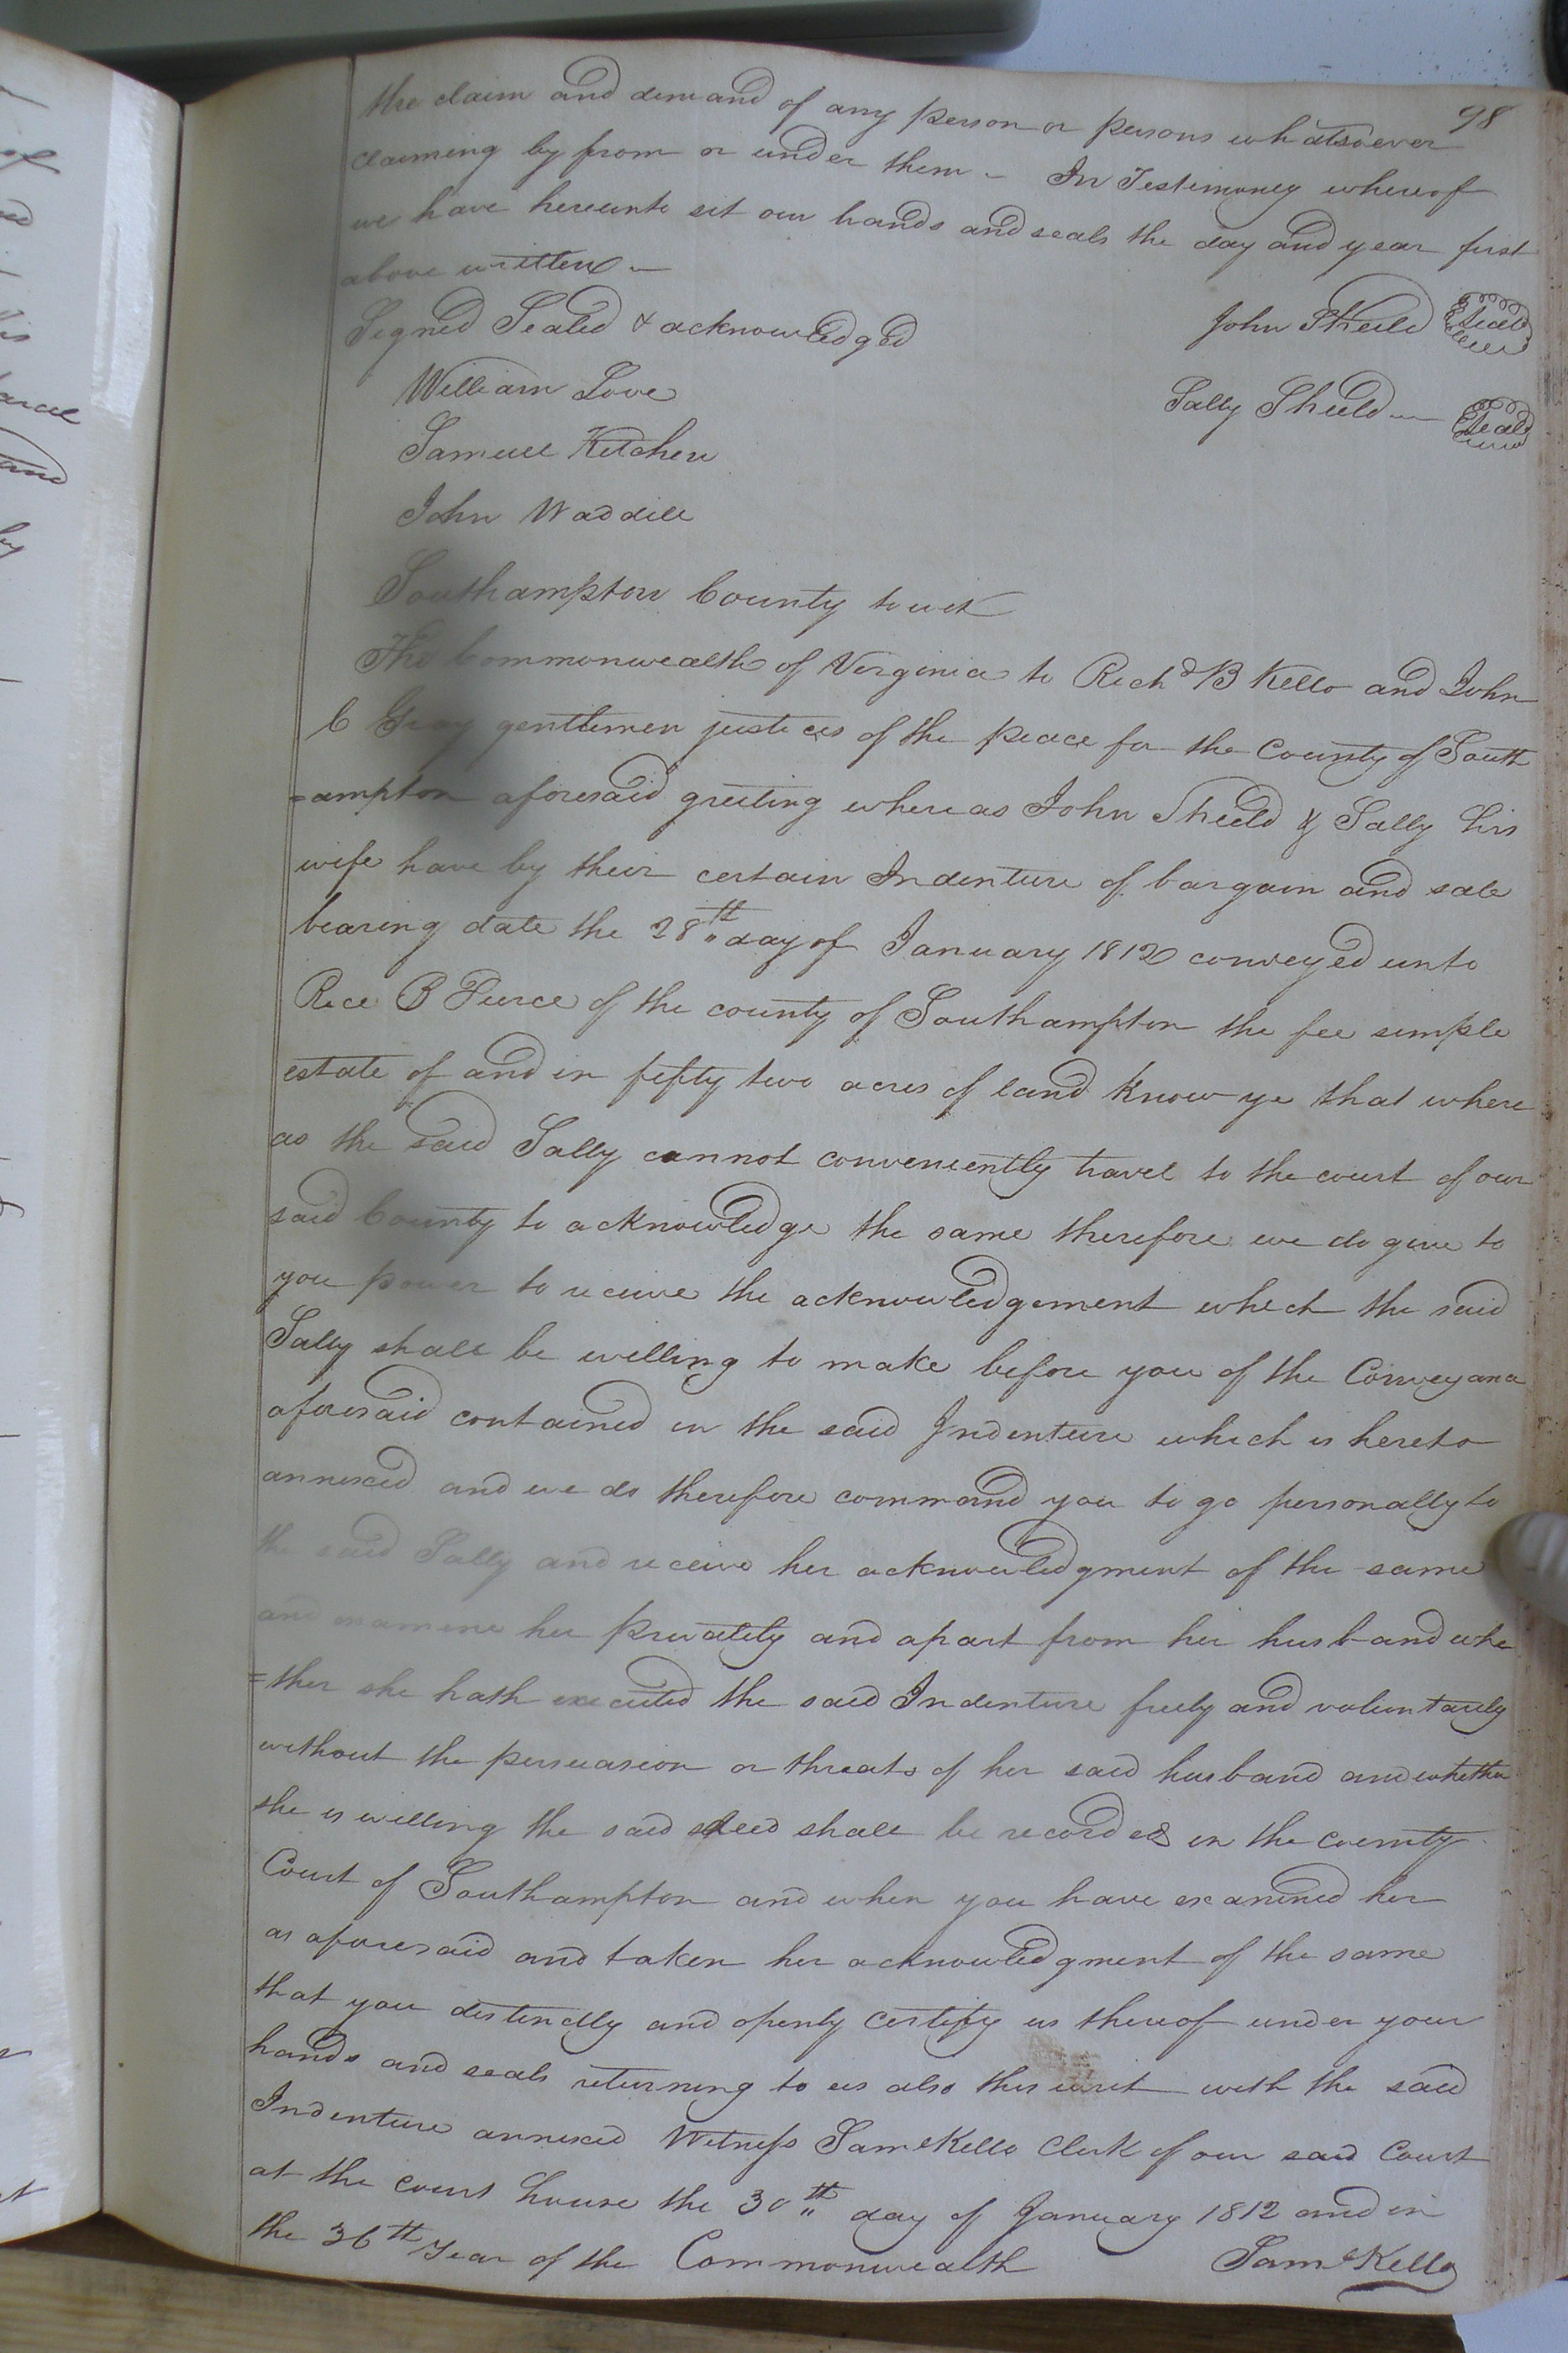 98
the claim and demand of any person or persons whatsoever
claiming by from or under them - In Testimoney whereof
we have hereunto set our hands and seals the day and year first
above written -
Signed Sealed & acknowledged
John Sheild Seal
William Love
Sally Sheild Seal
Samuel Kitchen
John Waddill
Southampton County towit
The Commonwealth of Virginia to Richd B Kello and John
C Gray gentlemen justices of the peace for the County of South
=ampton aforesaid greeting whereas John Sheild & Sally his
wife have by their certain Indenture of bargain and sale
bearing date the 28th day of January 1812 conveyed unto
Rice B Pierce of the county of Southampton the fee simple
estate of and in fifty two acres of land know ye that where
as the said Sally cannot conveniently travel to the court of our
said County to acknowledge the same therefore we do give to
you power to receive the acknowledgement which the said
Sally shall be willing to make before you of the Conveyance
aforesaid contained in the said Indenture which is hereto
annexed and we do therefore command you to go personally to
the said Sally and receive her acknowledgment of the same
and examine her privately and apart from her husband whe
=ther she hath executed the said Indenture freely and voluntarily
without the persuasion or threats of her said husband and whether
she is willing the said deed shall be recorded in the county
Court of Southampton and when you have examined her
as aforesaid and taken her acknowledgment of the same
that you distinctly and openly certify us thereof under your
hands and seals returning to us also this writ with the said
Indenture annexed Witness Saml Kello Clerk of our said Court
at the court house the 30th day of January 1812 and in
the 36th Year of the Commonwealth
Saml Kello